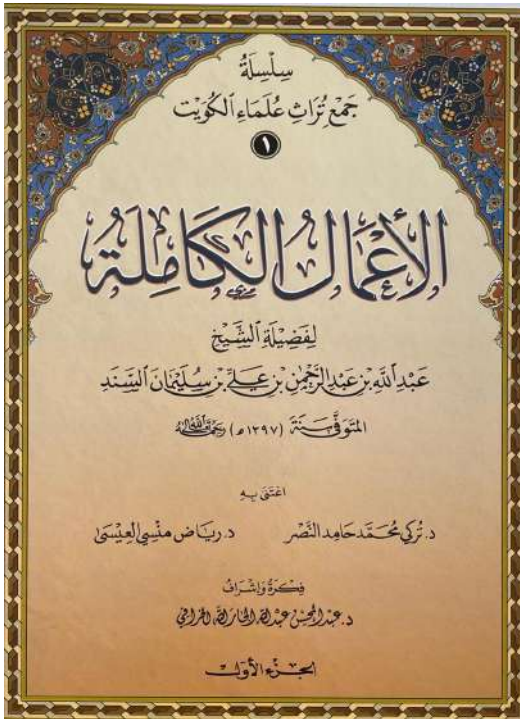 سِلْسِلَةُ
جَمْعِ تُرَاثِ عُلَمَاءِ الكُوَيْتِ
١
الأَعْمَالُ الكَامِلَةُ
لِفَضِيلَةِ الشَّيْخِ
عَبْدِ اللهِ بْنِ عَبْدِ الرَّحْمٰنِ بْنِ عَلِيِّ بْنِ سُلَيْمَانَ السَّنَدِ
المُتَوَفَّى سَنَةَ (١٢٩٧هـ) رَحِمَهُ اللهُ تَعَالَى
اعْتَنَى بِهِ
د. تُركي مُحَمَّد حَامِد النَّصْر
د. رِيَاض مَنْسِي العِيسَى
فِكْرَةُ وَإِشْرَافُ
د. عَبْد المُحْسِن عَبْد الله الجَار الله الخَرَافِي
الجُزْءُ الأَوَّلُ